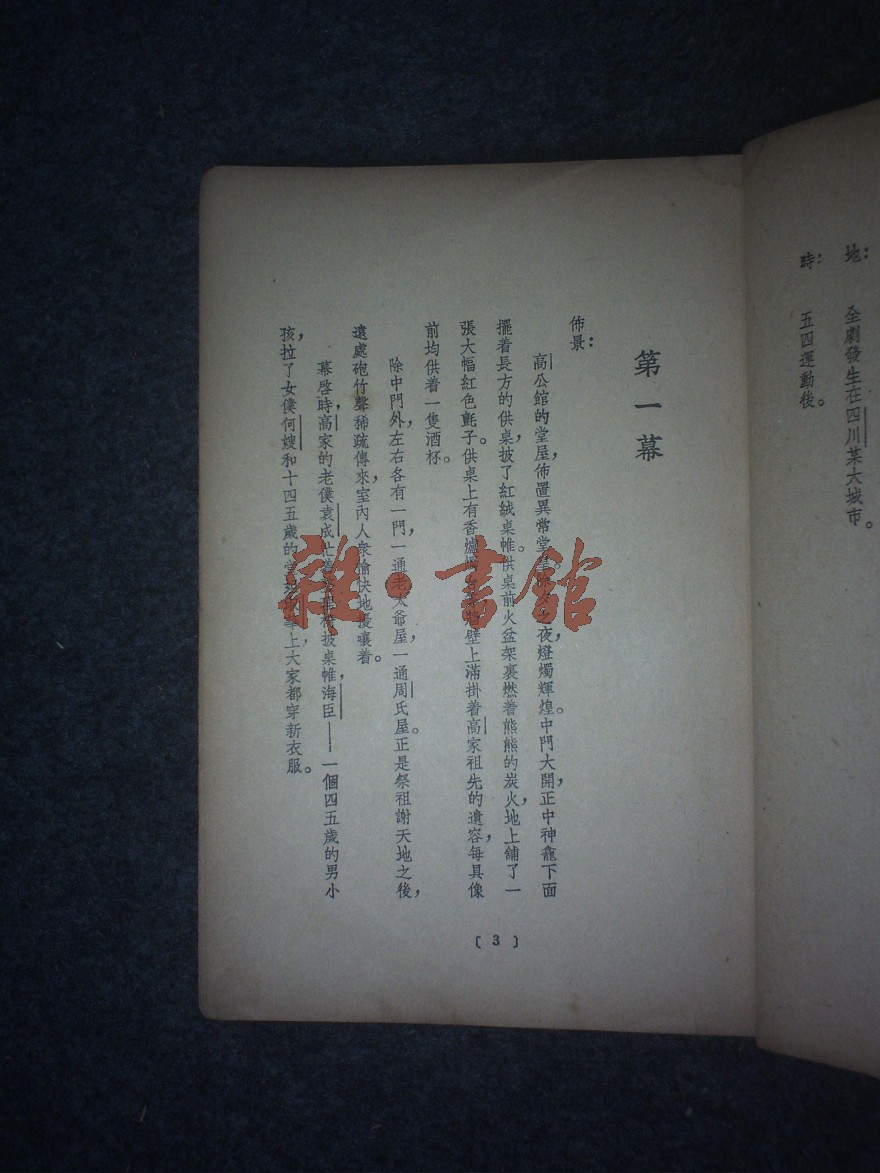 地：　全劇發生在四川某大城市。
時：　五四運動後。
第一幕
佈景：
高公館的堂屋，佈置異常堂皇。之夜，燈燭輝煌。中門大開，正中神龕下面
擺着長方的供桌，披了紅絨桌帷。供桌前火盆架裏燃着熊熊的炭火，地上鋪了一
張大幅紅色氈子。供桌上有香爐壁上滿掛着高家祖先的遺容，每具像
前均供着一隻酒杯。
除中門外，左右各有一門，一通老太爺屋，一通周氏屋。正是祭祖謝天地之後，
遠處砲竹聲稀疏傳來，室內人衆愉快地擾嚷着。
幕啓時，高家的老僕袁成忙着披桌帷，海臣——一個四五歲的男小
孩，拉了女僕何嫂和十四五歲的上大家都穿新衣服。
〔3〕
雜·書館